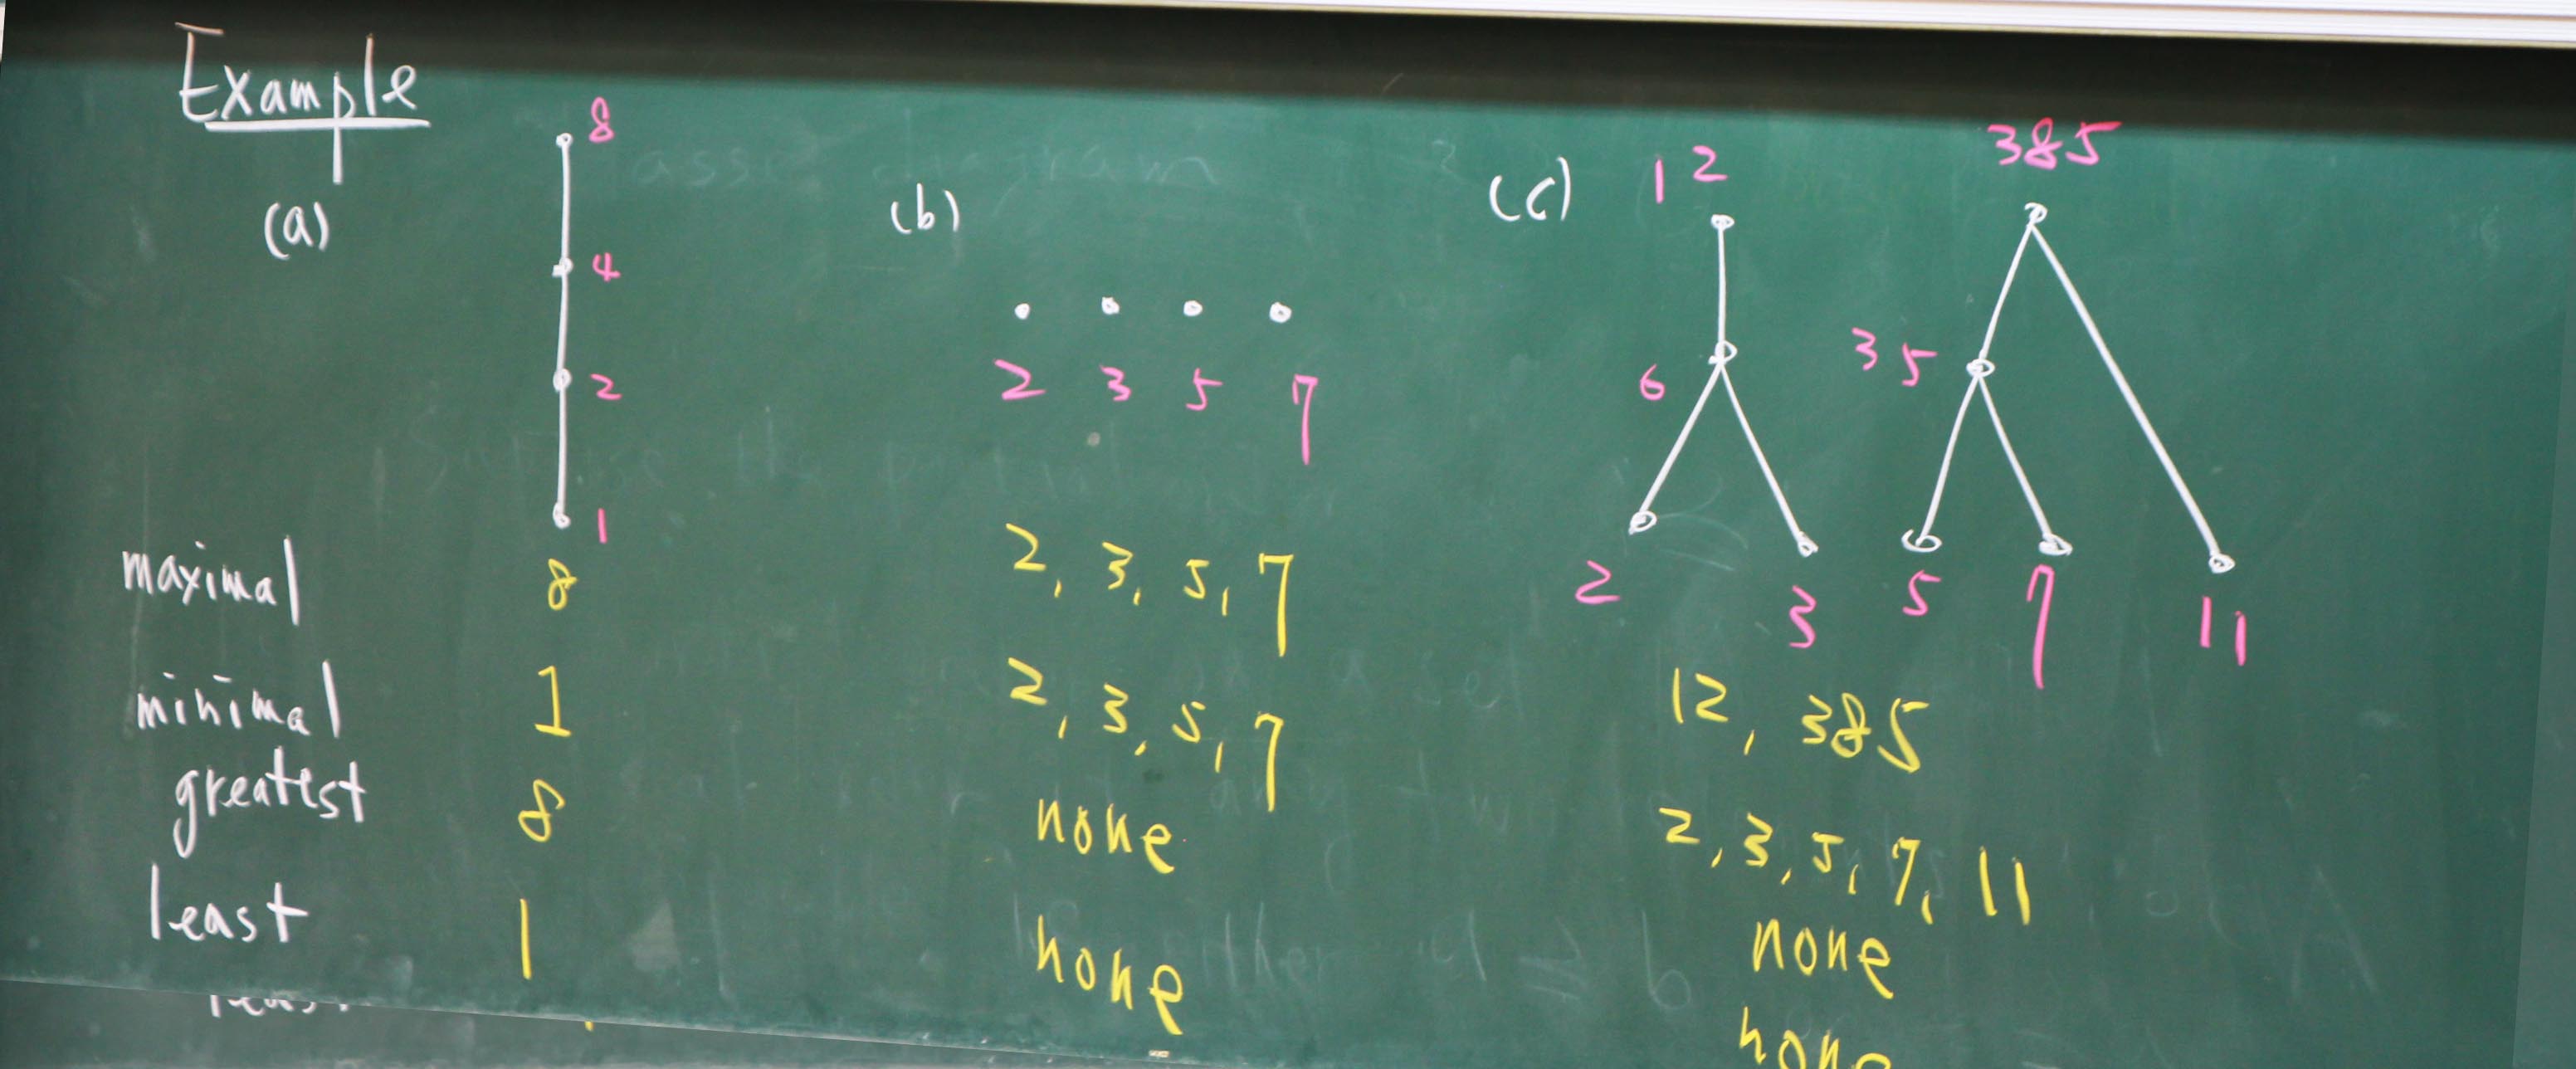 Example
(a)
8
4
2
1
(b)
2 3 5 7
(c)
12
6
2 3
385
35
5 7 11
maximal 8 2, 3, 5, 7
minimal 1 2, 3, 5, 7 12, 385
greatest 8 none 2, 3, 5, 7, 11
least 1 none none
none